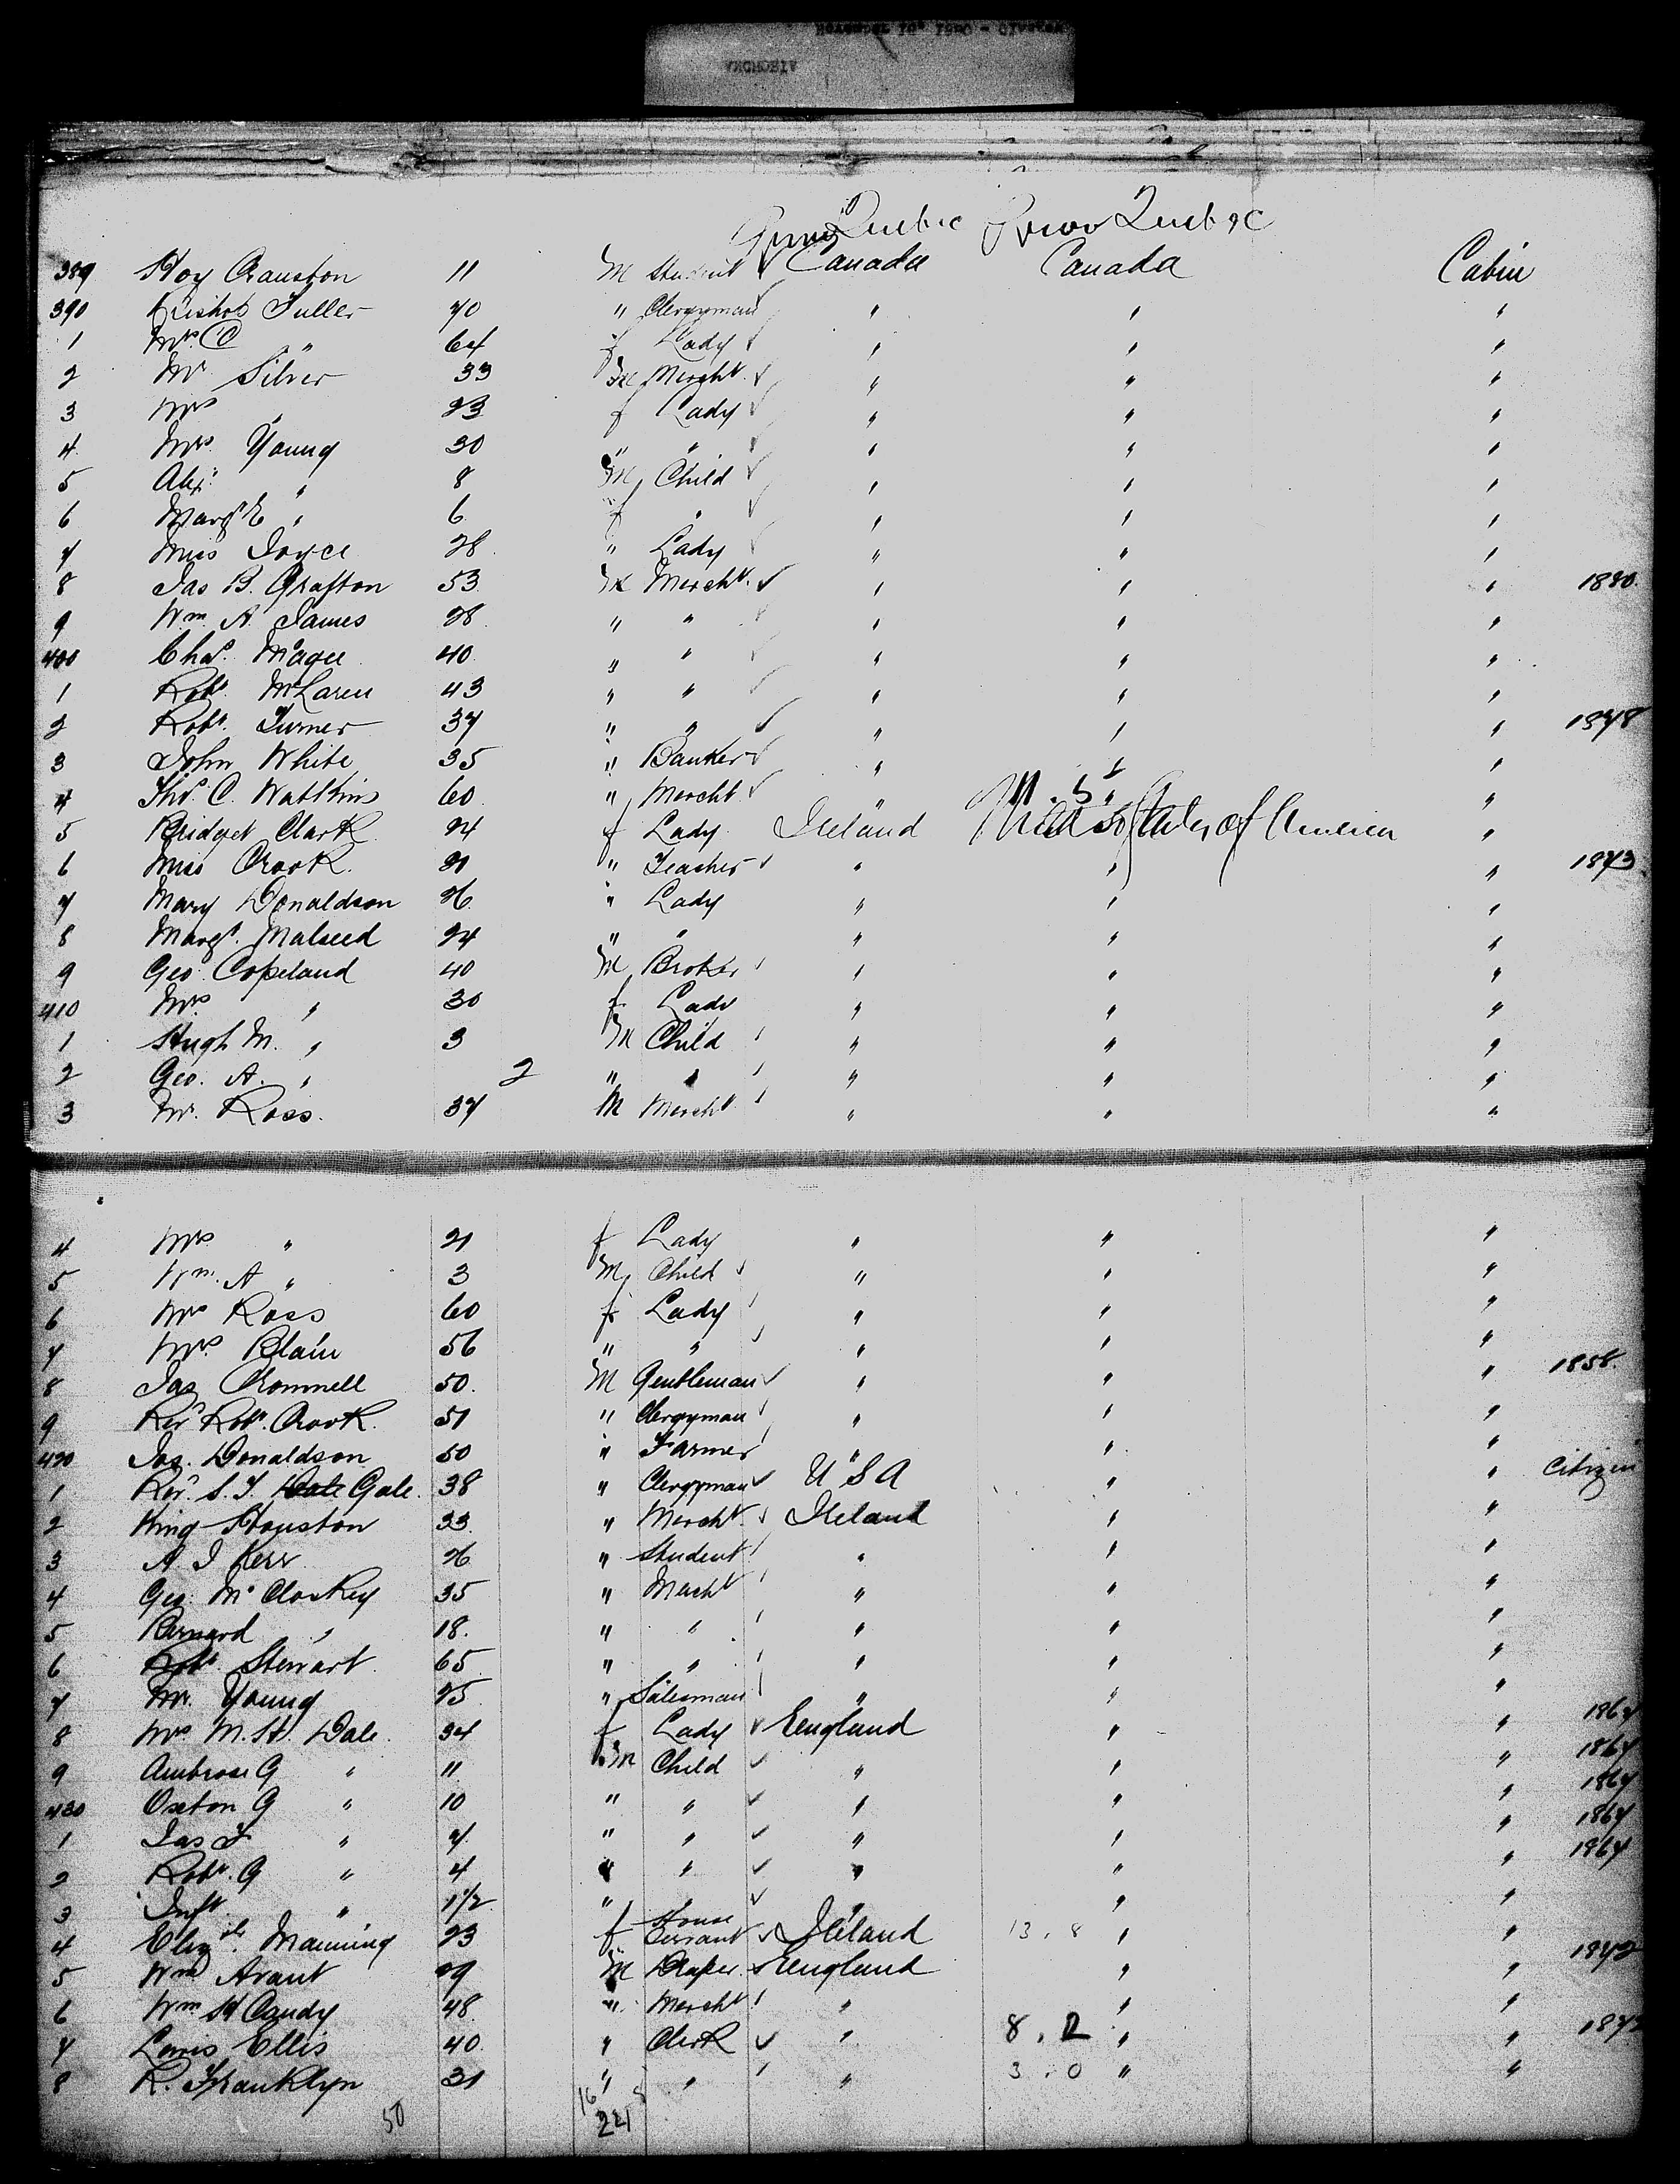 ANCHORIA
Quebec Prov Quebec
389 Hoy Cranston 11 M Student ✓ Canada Canada Cabin
390 Bishop Fuller 70 " Clergyman ✓ " " "
1 Mrs C " 64 f Lady ✓ " " "
2 Mr Silver 33 M Mercht. ✓ " " "
3 Mrs " 23 f Lady ✓ " " "
4 Mrs. Young 30 " " ✓ " " "
5 Alex " 8 M Child ✓ " " "
6 Margt E " 6 f " ✓ " " "
7 Miss Joyce 28 " Lady ✓ " " "
8 Jas B. Grafton 53 M Mercht. ✓ " " " 1880.
9 Wm. A. James 28 " " ✓ " " "
400 Chas. Magee 40 " " ✓ " " "
1 Robt. McLaren 43 " " ✓ " " "
2 Robt. Turner 37 " " ✓ " " " 1878
3 John White 35 " Banker ✓ " " "
4 Thos. C. Watkins 60 " Mercht ✓ " " "
5 Bridget Clark 24 f Lady Ireland States of America "
6 Miss Crook. 21 " Teacher ✓ " " " 1873.
7 Mary Donaldson 26 " Lady " " "
8 Margt. Malseed 24 " " " " "
9 Geo. Copeland 40 M Broker ✓ " " "
410 Mrs. " 30 f Lady " " "
1 Hugh M. " 3 M Child ✓ " " "
2 Geo. A. " 2 " " ✓ " " "
3 Mr. Ross. 37 M Mercht ✓ " " "
4 Mrs " 21 f Lady " " "
5 Wm. A " 3 M Child ✓ " " "
6 Mrs Ross 60 f Lady ✓ " " "
7 Mrs. Blain 56 " " ✓ " " "
8 Jas Cromwell 50. M Gentleman ✓ " " " 1858.
9 Revd Robt. Crook. 51 " Clergyman ✓ " " "
420 Jas. Donaldson 50 " Farmer ✓ " " "
1 Revd. S. T. Gale. 38 " Clergyman ✓ U S A " " Citizen
2 King Houston 33. " Mercht. ✓ Ireland " "
3 A. J Kerr 26 " Student ✓ " " "
4 Geo. McCloskey 35 " Mercht ✓ " " "
5 Bernard " 18. " " ✓ " " "
6 Robt. Stewart. 65 " " ✓ " " "
7 Mr. Young 25 " Salesman ✓ " " "
8 Mrs M. H. Dale. 34 f Lady ✓ England " " 1867
9 Ambrose G " 11 M Child ✓ " " " 1867
430 Oxton G " 10 " " ✓ " " " 1867
1 Jas F " 7. " " ✓ " " " 1867
2 Robt. G " 4 " " ✓ " " " 1867
3 Inft. " 1 1/2 " " ✓ " " "
4 Elizth. Manning 23 f House Servant ✓ Ireland 13.8 " "
5 Wm Avant 29 M Draper. ✓ England " " 1872
6 Wm H Candy 48. " Mercht ✓ " " "
7 Lewis Ellis 40. " Clerk ✓ " 8.2 " "
8 R. Franklyn 31 " " ✓ " 3.0 " "
50 16 8
221